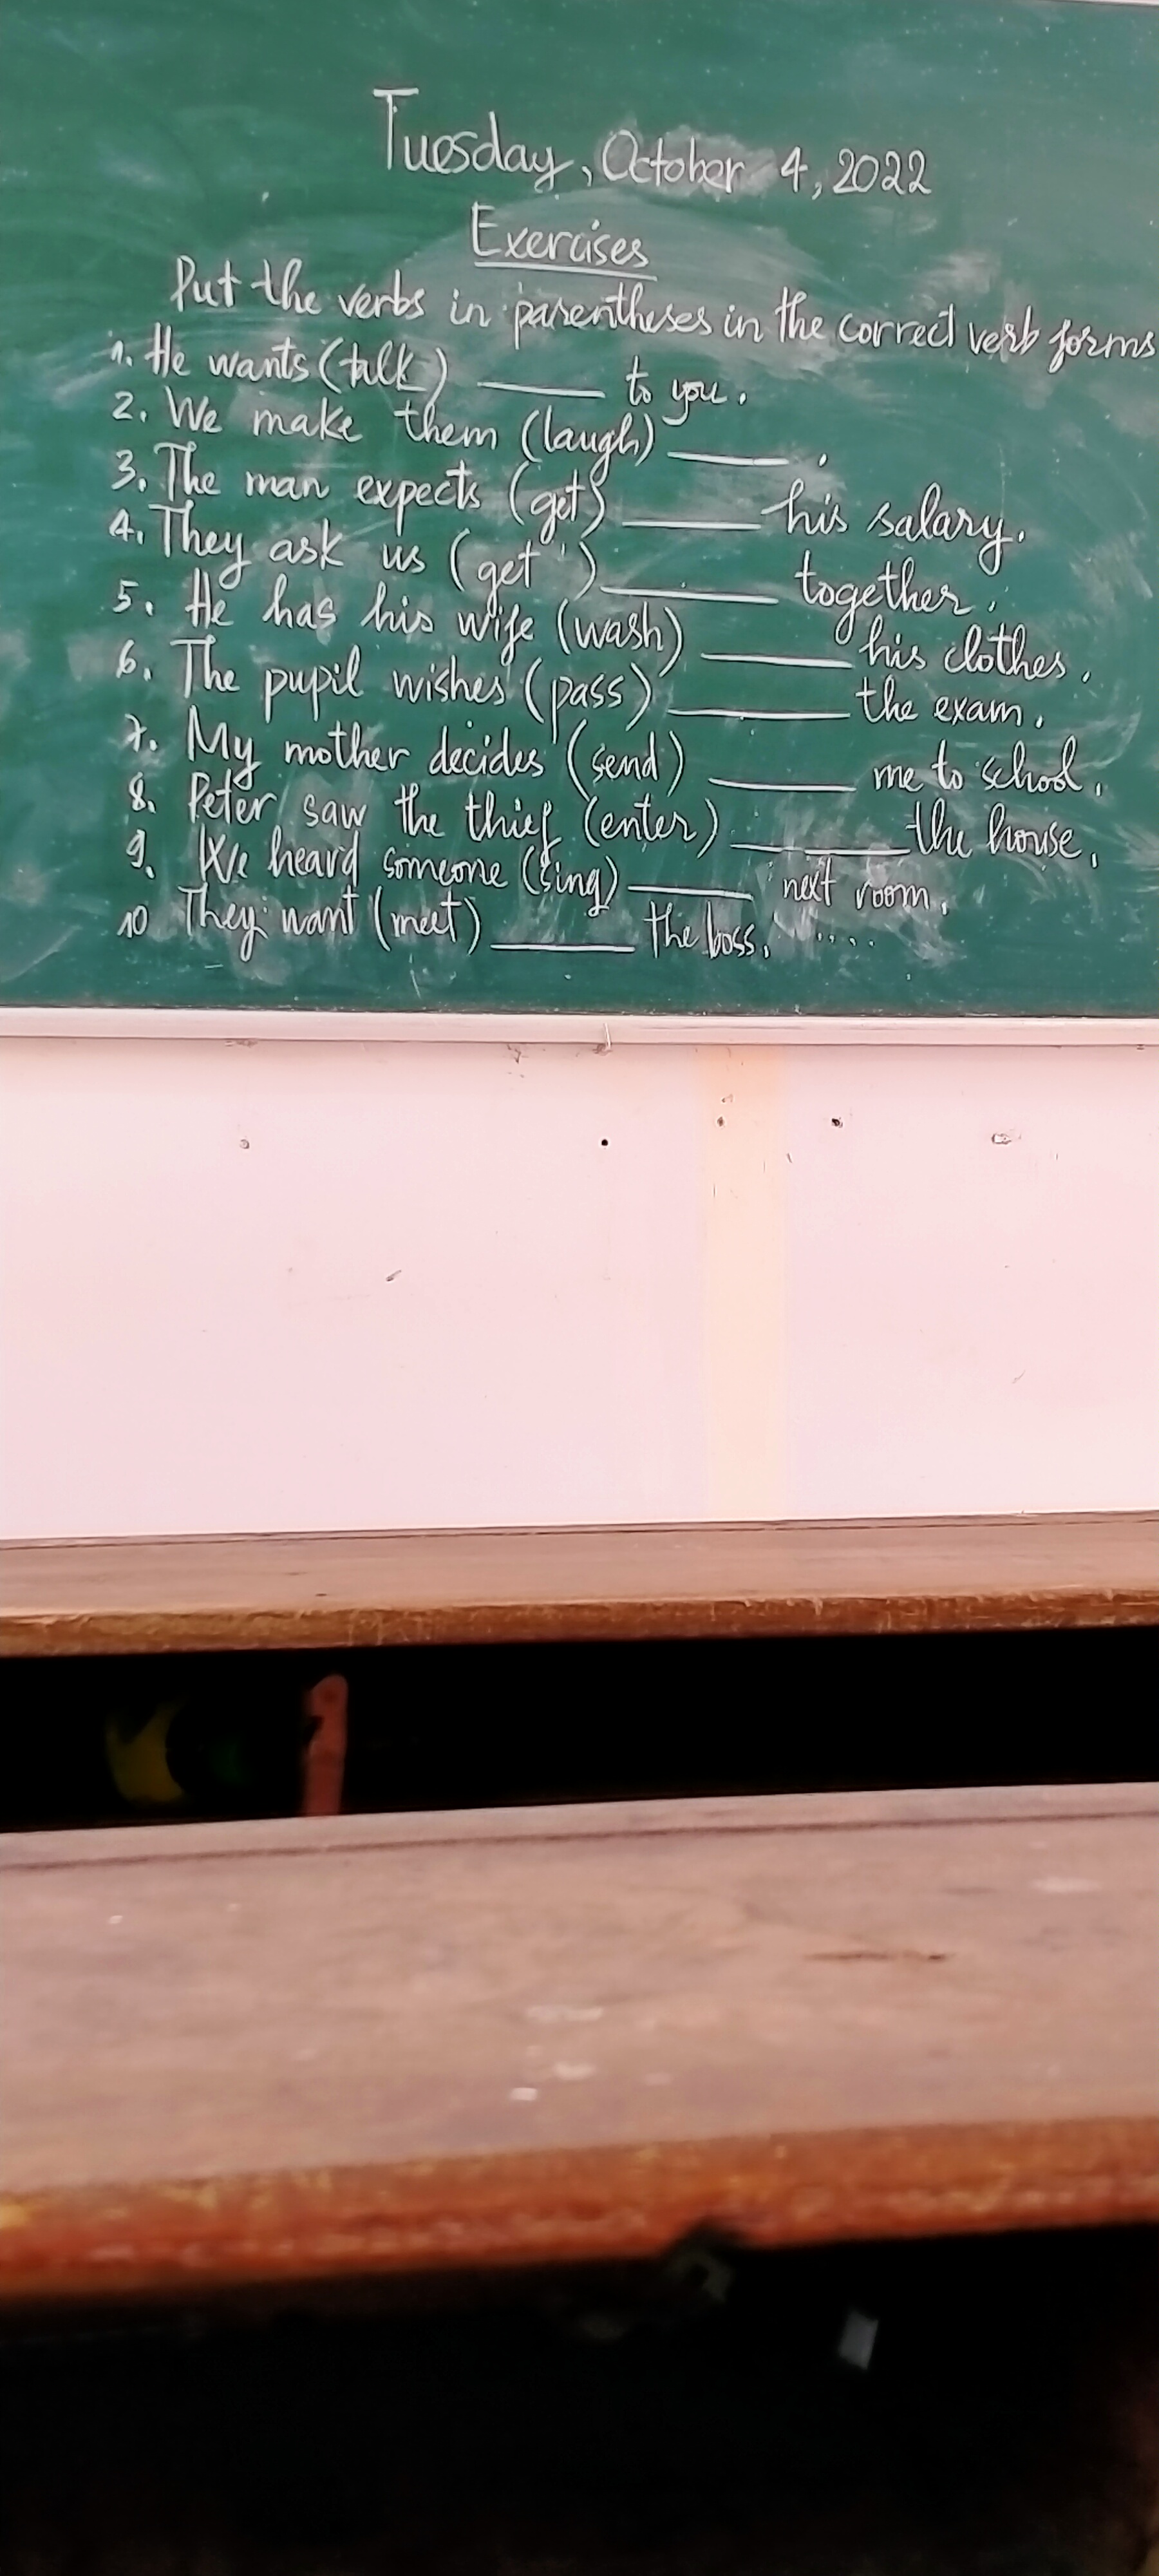 Tuesday, October 4, 2022
Exercises
Put the verbs in parentheses in the correct verb forms
1. He wants (talk) ______ to you.
2. We make them (laugh) ______.
3. The man expects (get) ______ his salary.
4. They ask us (get) ______ together.
5. He has his wife (wash) ______ his clothes.
6. The pupil wishes (pass) ______ the exam.
7. My mother decides (send) ______ me to school.
8. Peter saw the thief (enter) ______ the house.
9. We heard someone (sing) ______ next room.
10 They want (meet) ______ the boss. ....